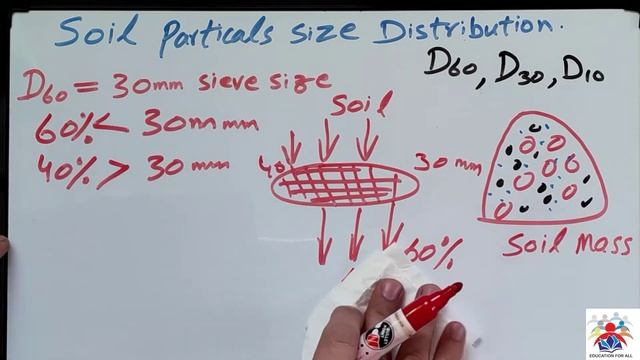 Soil Particals size Distribution.
D60 = 30mm sieve size
D60, D30, D10
60% < 30mm mm
40% > 30 mm
Soil
40
30 mm
60%
Soil Mass
EDUCATION FOR ALL